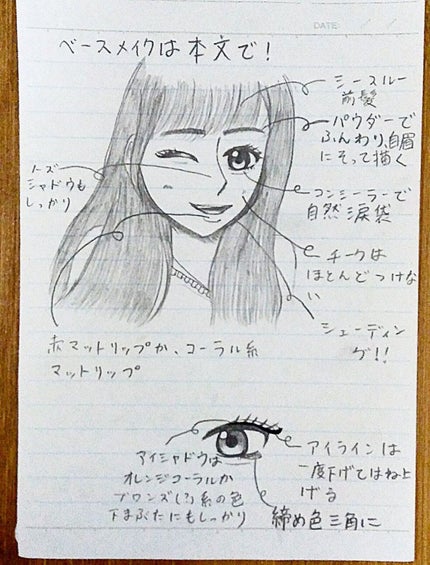 DATE
ベースメイクは本文で！
シースルー
前髪
パウダーで
ふんわり、自眉
にそって描く
ノーズ
シャドウも
しっかり
コンシーラーで
自然涙袋
チークは
ほとんどつけな
い
シェーディン
グ!!
赤マットリップか、コーラル系
マットリップ
アイシャドウは
オレンジコーラルか
ブロンズ(?)系の色
下まぶたにもしっかり
アイラインは
一度下げてはね上
げる
締め色三角に